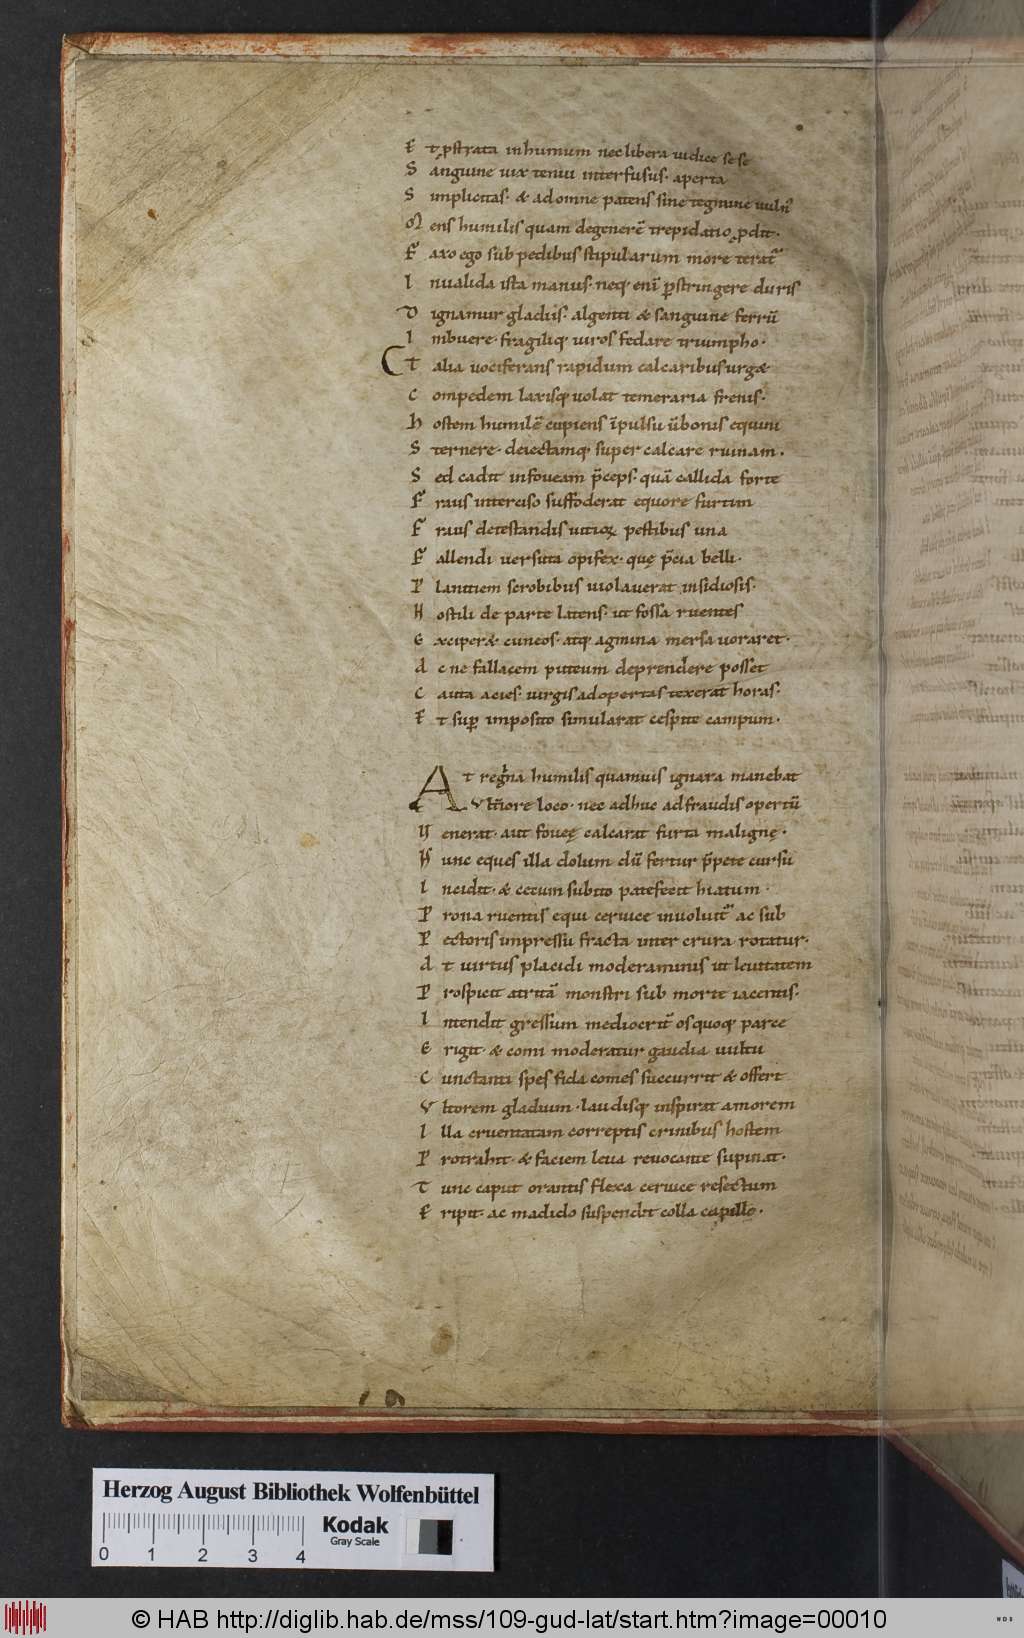 E t ꝓstrata in humum nec libera iudice se se
S anguine uix tenui interfusus· aperta
S implicitas· & ad omne patens sine tegmine uuln̄
M ens humilis quam degenerē trepidatio ꝓdit·
F axo ego sub pedibus stipularum more terat᷑
I nualida ista manus· neq; enī p̄stringere duris
D ignamur gladiis· algenti & sanguine ferrū
I mbuere· fragiliq; uiros fedare triumpho·
T alia uociferans rapidum calcaribus urg&
C ompedem laxisq; uolat temeraria frenis·
h ostem humilē cupiens īpulsu ūbonis equini
S ternere· deiectamq; super calcare ruinam·
S ed cadit in foueam p̄ceps· quā callida forte
F raus interciso suffoderat equore furtim
F raus detestandis uitioꝝ pestibus una
F allendi uersuta opifex· quę p̄cia belli·
P lanitiem scrobibus uiolauerat insidiosis·
H ostili de parte latens· ut fossa ruentes
E xciper& cuneos· atq; agmina mersa uoraret·
a c ne fallacem puteum deprendere posset
C auta acies· uirgis adopertas texerat horas·
E t suꝑ imposito simularat cespite campum·
A t regina humilis quamuis ignara manebat
V lt̄iore loco· nec adhuc ad fraudis opertū
U enerat· aut foueę calcarat furta malignę·
H unc eques illa dolum dū fertur p̄pete cursu
I ncidit· & cecum subito patefecit hiatum·
P rona ruentis equi ceruice inuoluit᷑ ac sub
P ectoris impressu fracta inter crura rotatur·
a t uirtus placidi moderaminis ut leuitatem
P rospicit atritā monstri sub morte iacentis·
I ntendit gressum mediocrit̄ os quoq; parce
E rigit· & comi moderatur gaudia uultu
C unctanti spes fida comes succurrit & offert
V ltorem gladium· laudisq; inspirat amorem
I lla cruentatam correptis crinibus hostem
P rotrahit· & faciem leua reuocante supinat·
T unc caput orantis flexa ceruice resectum
E ripit· ac madido suspendit colla capillo·
Herzog August Bibliothek Wolfenbüttel
0 1 2 3 4
Kodak
Gray Scale
© HAB http://diglib.hab.de/mss/109-gud-lat/start.htm?image=00010